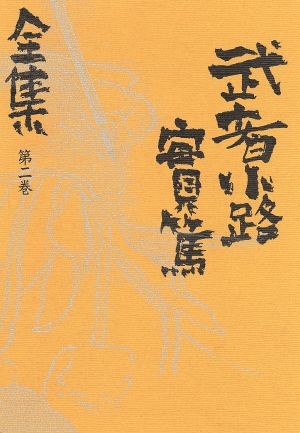 武者小路
實篤
全集
第二巻